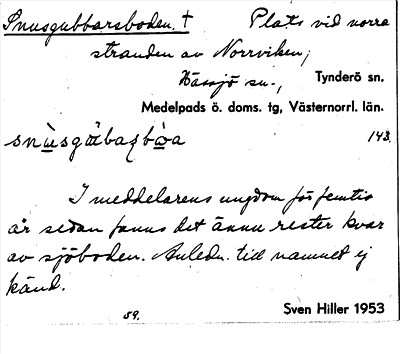 Snusgubbarsboden. † Plats vid norra
stranden av Norrviken;
Hässjö sn., Tynderö sn.
Medelpads ö. doms. tg, Västernorrl. län.
143.
I meddelarens ungdom för femtio
år sedan fanns det ännu rester kvar
av sjöboden. Anledn. till namnet ej
känd.
59. Sven Hiller 1953